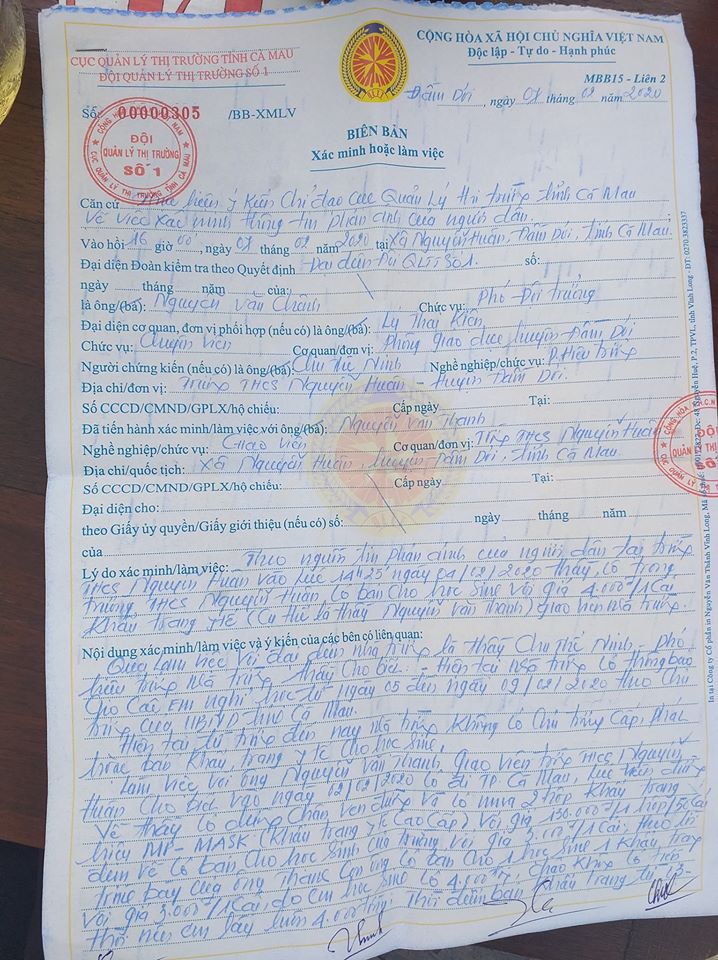 CỤC QUẢN LÝ THỊ TRƯỜNG TỈNH CÀ MAU
ĐỘI QUẢN LÝ THỊ TRƯỜNG SỐ 1
CỘNG HÒA XÃ HỘI CHỦ NGHĨA VIỆT NAM
Độc lập - Tự do - Hạnh phúc
MBB15 - Liên 2
Số: 00000305 /BB-XMLV
Đầm Dơi, ngày 07 tháng 02 năm 2020
ĐỘI
QUẢN LÝ THỊ TRƯỜNG
SỐ 1
BIÊN BẢN
Xác minh hoặc làm việc
Căn cứ Thực hiện ý kiến chỉ đạo cục Quản Lý thị trường tỉnh Cà Mau
Về việc xác minh thông tin phản ánh của người dân.
Vào hồi 16 giờ 00, ngày 07 tháng 02 năm 2020 tại xã Nguyễn Huân, Đầm Dơi, tỉnh Cà Mau.
Đại diện Đoàn kiểm tra theo Quyết định Đại diện Đội QLTT Số 1. số:
ngày tháng năm của:
là ông/(bà): Nguyễn Văn Chánh Chức vụ: Phó Đội trưởng
Đại diện cơ quan, đơn vị phối hợp (nếu có) là ông/(bà) Lý Thay Kiên
Chức vụ: Chuyên viên Cơ quan/đơn vị: Phòng giáo dục huyện Đầm Dơi
Người chứng kiến (nếu có) là ông/(bà): Chu Thế Ninh Nghề nghiệp/chức vụ: P. Hiệu trưởng
Địa chỉ/đơn vị: Trường THCS Nguyễn Huân - Huyện Đầm Dơi.
Số CCCD/CMND/GPLX/hộ chiếu: Cấp ngày Tại:
Đã tiến hành xác minh/làm việc với ông/(bà): Nguyễn Văn Thanh
Nghề nghiệp/chức vụ: Giáo viên Cơ quan/đơn vị: Trường THCS Nguyễn Huân
Địa chỉ/quốc tịch: Xã Nguyễn Huân, huyện Đầm Dơi, tỉnh Cà Mau
Số CCCD/CMND/GPLX/hộ chiếu: Cấp ngày Tại:
Đại diện cho:
theo Giấy ủy quyền/Giấy giới thiệu (nếu có) số: ngày tháng năm
của
Lý do xác minh/làm việc: Theo nguồn tin phản ánh của người dân tại trường
THCS Nguyễn Huân vào lúc 14h25 ngày 04/02/2020 thấy, cô trong
trường THCS Nguyễn Huân, có bán cho học sinh với giá 4.000đ/1 cái
khẩu trang y tế (cụ thể là thầy Nguyễn Văn Thanh) giáo viên nhà trường.
Nội dung xác minh/làm việc và ý kiến của các bên có liên quan:
Qua làm việc với đại diện nhà trường là thầy Chu Thế Ninh - phó
hiệu trưởng nhà trường thầy cho biết: - hiện tại nhà trường có thông báo
cho các em nghỉ học từ ngày 05 đến ngày 09/02/2020 theo chủ
trương của UBND tỉnh Cà Mau.
Hiện tại từ trước đến nay nhà trường không có chủ trương cấp, phát
hoặc bán khẩu trang y tế cho học sinh.
Làm việc với ông Nguyễn Văn Thanh, giáo viên trường THCS Nguyễn
Huân cho biết vào ngày 02/02/2020 có đi TP. Cà Mau, lúc trên đường
về thầy có dừng chân ven đường và có mua 2 hộp khẩu trang y
hiệu MP-MASK (khẩu trang y tế cao cấp) với giá 150.000đ/1 hộp/50 cái
đem về có bán cho học sinh của trường với giá 3.000đ/1 cái, theo lời
trình bày của ông Thanh còn ông có bán cho 1 học sinh 1 khẩu trang
với giá 3.000đ/1 cái, do em học sinh có 4.000đ, giáo không có tiền
thối nên em lấy luôn 4.000đ. Thời điểm bán khẩu trang từ 3-
In tại Công ty Cổ phần in Nguyễn Văn Thảnh Vĩnh Long, Đc: 48 Nguyễn Huệ, P.2, TPVL, tỉnh Vĩnh Long - ĐT: 0270.3822337